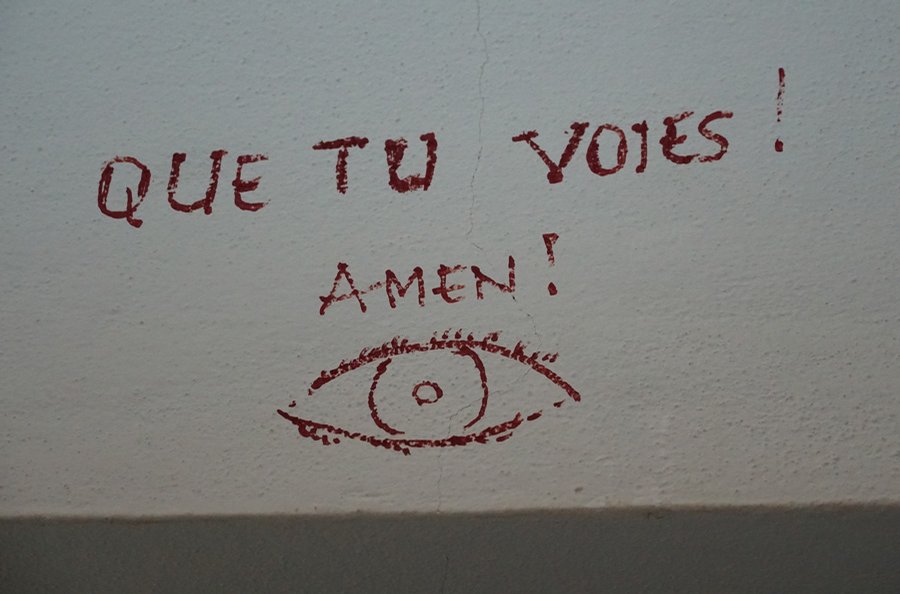 QUE TU VOIES !
AMEN !